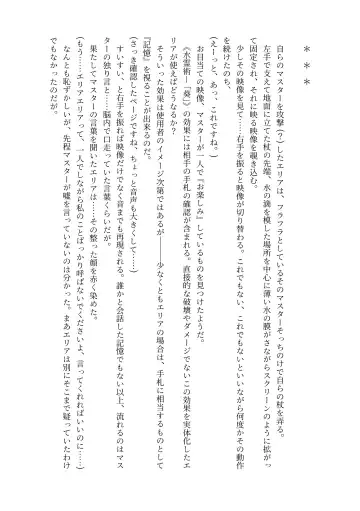 ＊　＊　＊
自らのマスターを攻撃（？）したエリアは、フラフラとしているそのマスターそっちのけで自らの杖を弄る。
左手で支えて地面に立てた杖の先端、水の滴を模した場所を中心に薄い水の膜がさながらスクリーンのように拡がっ
て固定され、それに映る映像を覗き込む。
少しその映像を見て……右手を振ると映像が切り替わる。これでもない、これでもないといいながら何度かその動作
を続けたのち、
（えーっと、あっ、これですね。）
お目当ての映像、マスターが一人で『お楽しみ』しているものを見つけたようだ。
《水霊術―「葵」》の効果には相手の手札の確認が含まれる。直接的な破壊やダメージでないこの効果を実体化したエ
リアが使えばどうなるか？
そういった効果は使用者のイメージ次第ではあるが――少なくともエリアの場合は、手札に相当するものとして
『記憶』を視ることが出来るのだ。
（さっき確認したページですね、ちょっと音声も大きくして……）
すいすい、と右手を振れば映像だけでなく音までも再現される。誰かと会話した記憶でもない以上、流れるのはマス
ターの独り言と……脳内で口走っていた言葉くらいだが。
果たしてマスターの言葉を聞いたエリアは……その整った顔を赤く染めた。
（もう……エリアエリアって、一人でしながら私のことばっかり呼ばないでくださいよぉ、言ってくれればいいのに……）
なんとも恥ずかしいが、先程マスターが嘘を言っていないのは分かった。まあエリアは別にそこまで疑っていたわけ
でもなかったのだが。